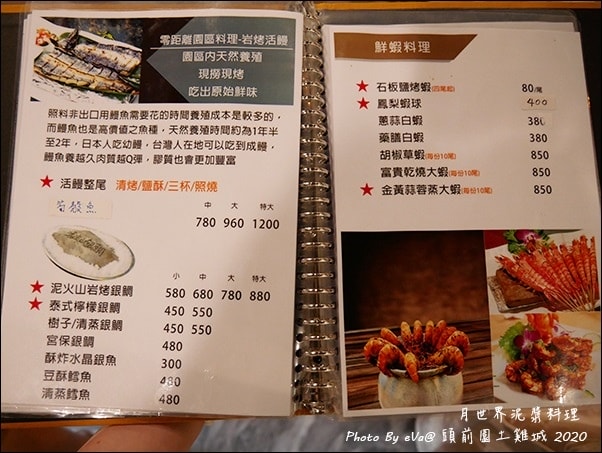 零距離園區料理-岩烤活鰻
園區內天然養殖
現撈現烤
吃出原始鮮味
照料非出口用鰻魚需要花的時間養殖成本是較多的，
而鰻魚也是高價值之魚種，天然養殖時間約為1年半
至2年，日本人吃幼鰻，台灣人在地可以吃到成鰻，
鰻魚養越久肉質越Q彈，膠質也會更加豐富
★ 活鰻整尾 清烤/鹽酥/三杯/照燒
中 大 特大
780 960 1200
筍殼魚
小 中 大 特大
★ 泥火山岩烤銀鯛 580 680 780 880
★ 泰式檸檬銀鯛 450 550
樹子/清蒸銀鯛 450 550
宮保銀鯛 480
酥炸水晶銀魚 300
豆酥鱈魚 480
清蒸鱈魚 480
鮮蝦料理
★ 石板鹽烤蝦(四尾起) 80/尾
★ 鳳梨蝦球 400
蔥蒜白蝦 380
藥膳白蝦 380
胡椒草蝦(每份10尾) 850
富貴乾燒大蝦(每份10尾) 850
★ 金黃蒜蓉蒸大蝦(每份10尾) 850
月世界泥漿料理
Photo By eVa@ 頭前園土雞城 2020